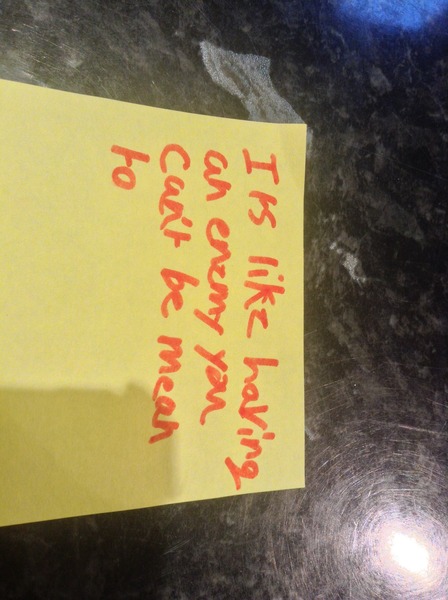 I is like having
an enemy you
can't be mean
to